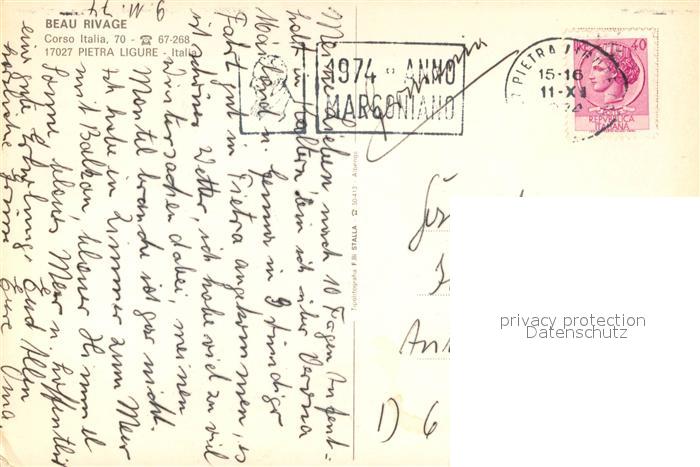 BEAU RIVAGE
Corso Italia, 70 - ☎ 67-268
17027 PIETRA LIGURE - Italia
9. 11. 74
Meine Lieben nach 10 Tagen
halt in bin ich über Verona
Mailand u. Genua in 9 stündiger
Fahrt gut in Pietra angekommen, es
ist schönes Wetter, ich habe viel zu viel
Wintersachen dabei, meinen
Mantel brauche ich gar nicht.
Ich habe ein Zimmer zum Meer
mit Balkon, blauer Himmel
Sonne, blaues Meer u. hoffentlich
eine gute Erholung, Euch Allen
herzliche Grüsse Eure Oma.
Germania
1974 - ANNO
MARCONIANO
PIETRA LIGURE
15-16
11-XI
40
REPVBBLICA
ITALIANA
Tipolitografia F.lli STALLA ☎ 50413 - Albenga
D 6
privacy protection
Datenschutz